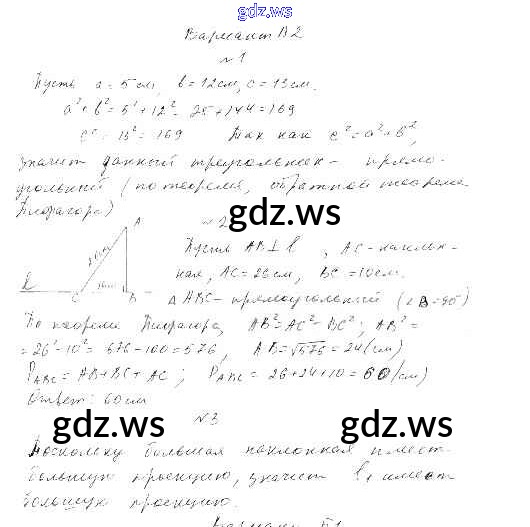 gdz.ws
Вариант А2
№1
Пусть a = 5 см, b = 12 см, c = 13 см.
a² + b² = 5² + 12² = 25 + 144 = 169
c² = 13² = 169 Так как c² = a² + b²,
значит данный треугольник - прямо-
угольный (по теореме, обратной теореме
Пифагора)
gdz.ws
№2
A
26 см
10 см
l
C
B
Пусть AB ⊥ l, AC - наклон-
ная, AC = 26 см, BC = 10 см.
△ABC - прямоугольный (∠B = 90°)
По теореме Пифагора, AB² = AC² - BC²; AB² =
= 26² - 10² = 676 - 100 = 576, AB = √576 = 24 (см)
P_ABC = AB + BC + AC; P_ABC = 26 + 24 + 10 = 60 (см)
Ответ: 60 см
gdz.ws
№3
gdz.ws
Поскольку большая наклонная имеет
большую проекцию, значит l₁ имеет
большую проекцию.
Вариант Б1